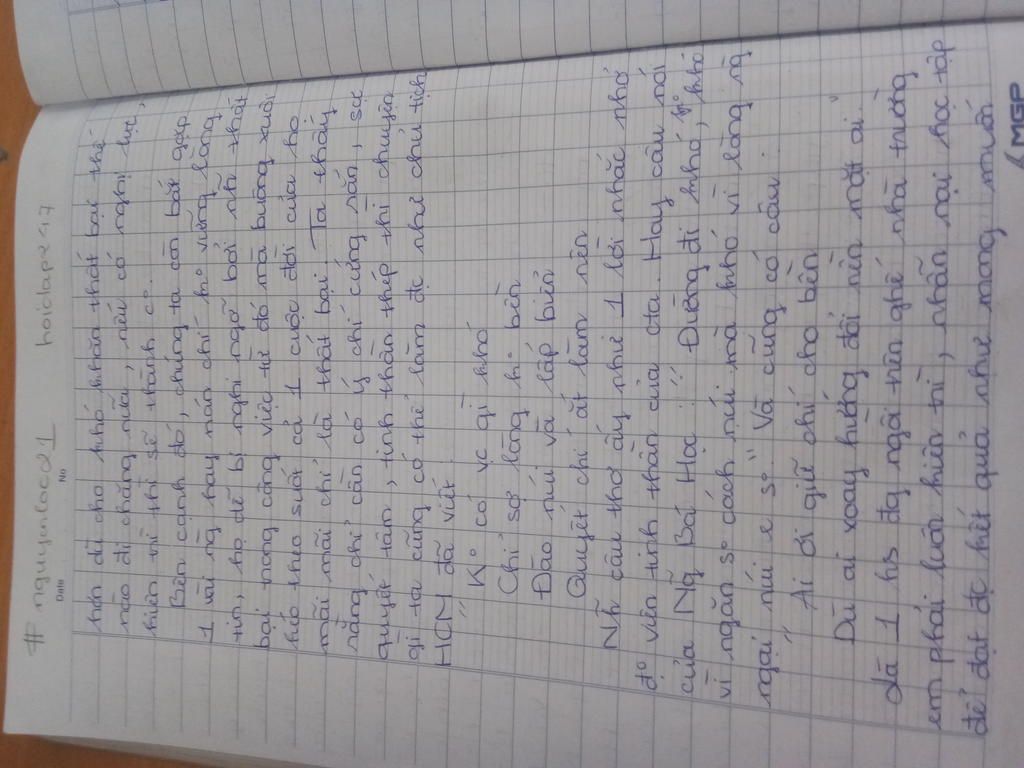 # nguyenlacd1 hoidap247
Date No
hơn dù cho khó khăn thất bại thế
nào đi chăng nữa, nếu có nghị lực,
kiên trì thì sẽ thành cº.
Bên cạnh đó, chúng ta còn bắt gặp
1 vài ng hay nản chí, kº vững lòng
tin, họ dễ bị nghỉ ngã bởi nh~ thất
bại trong công việc từ đó mà buông xuôi
kéo theo suốt cả 1 cuộc đời của họ
mãi mãi chỉ là thất bại. Ta thấy
rằng chỉ cần có ý chí cứng rắn, sự
quyết tâm, tinh thần thép thì chuyện
gì ta cũng có thể làm đc như chủ tịch
HCM đã viết
" Kº có vc gì khó
Chỉ sợ lòng kº bền
Đào núi và lấp biển
Quyết chí ắt làm nên
Nh~ câu thơ ấy như 1 lời nhắc nhở
độ viên tinh thần của cta. Hay câu nói
của Ng~ Bá Học : " Đường đi khó, kº khó
vì ngăn sº cách núi mà khó vì lòng ng
ngại núi e sº". Và cũng có câu :
" Ai ơi giữ chí cho bền
Dù ai xoay hướng đổi nền mặt ai "
Là 1 hs đg ngồi trên ghế nhà trường
em phải luôn kiên trì, nhẫn nại học tập
để đạt đc kết quả như mong muốn
MGP